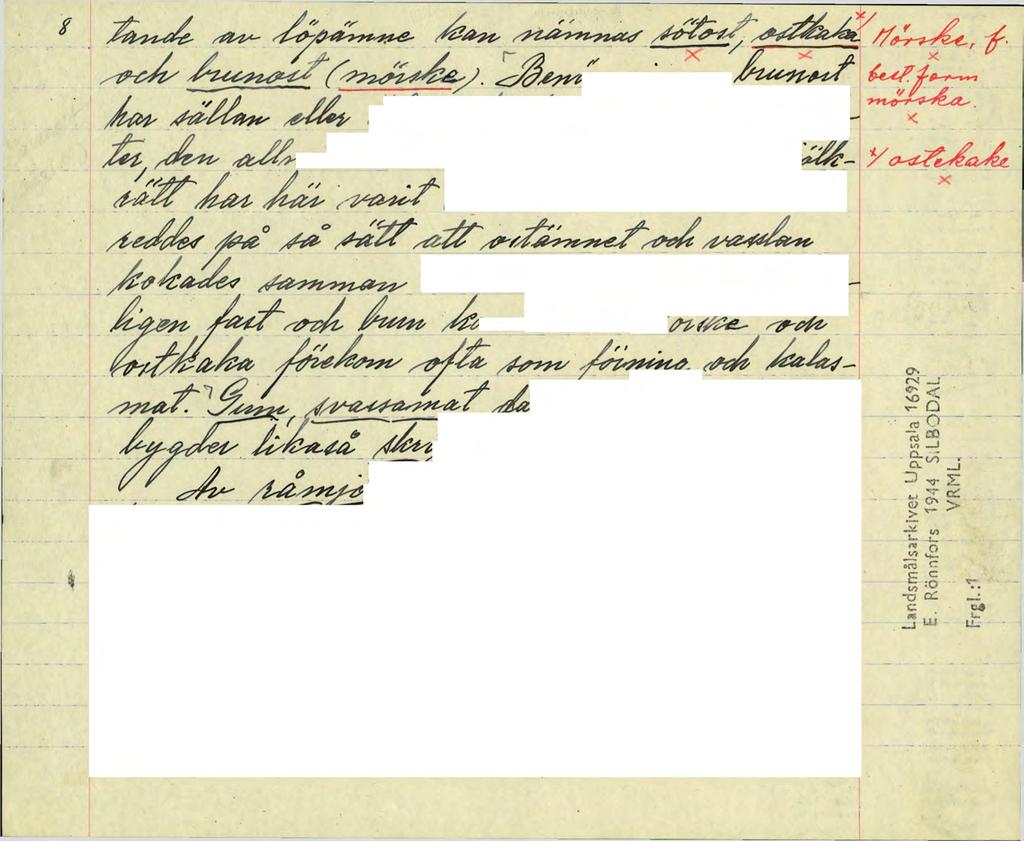 8
tande av löpämne kan nämnas sötost, ostkaka x/
och brunost (mörske). brunost
har sällan eller
ter, den
rätt har här varit
reddes på så sätt att ostämnet och vasslan
kokades samman
ligen fast och brun
och
ostkaka förekom ofta som förning och kalas-
mat. Gum, svassamat
bygder likaså
Av
Mörske, f.
best. form
mörska.
x/ ostekake
Landsmålsarkivet Uppsala 16929
E. Rönnfors 1944 SILBODAL
VRML.
Frgl.:1